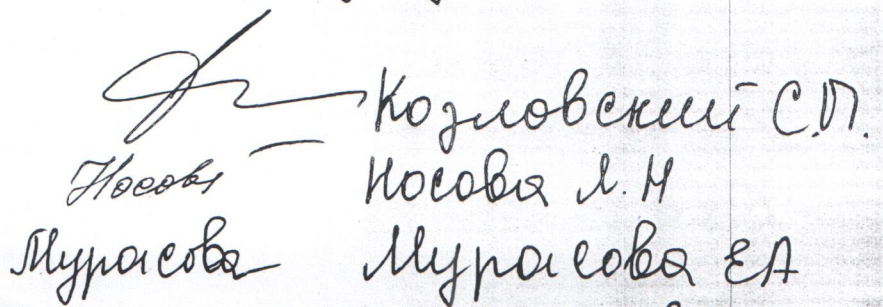 Козловский С.П.
Носова Носова Л.Н
Мурасова Мурасова ЕА